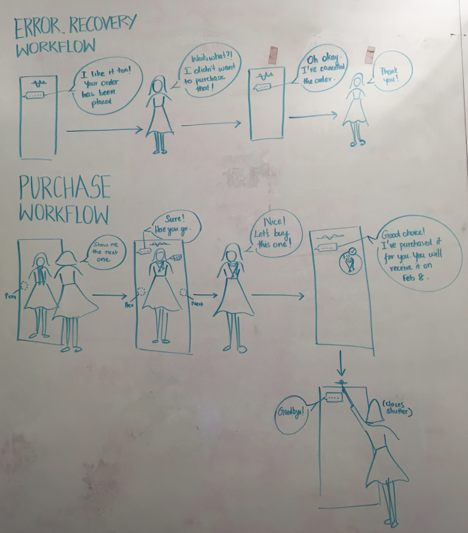 ERROR. RECOVERY
WORKFLOW
I like it too!
Your order
has been
placed
Wait, what?!
I didn't want
to purchase
that!
Oh okay.
I've cancelled
the order.
Thank
you!
PURCHASE
WORKFLOW
Show me
the next
one
Prev
Sure!
Here you go
Prev
Next
Nice!
Let's buy
this one!
Good choice!
I've purchased it
for you. You will
receive it on
Feb 8.
Goodbye!
(closes
shutter)